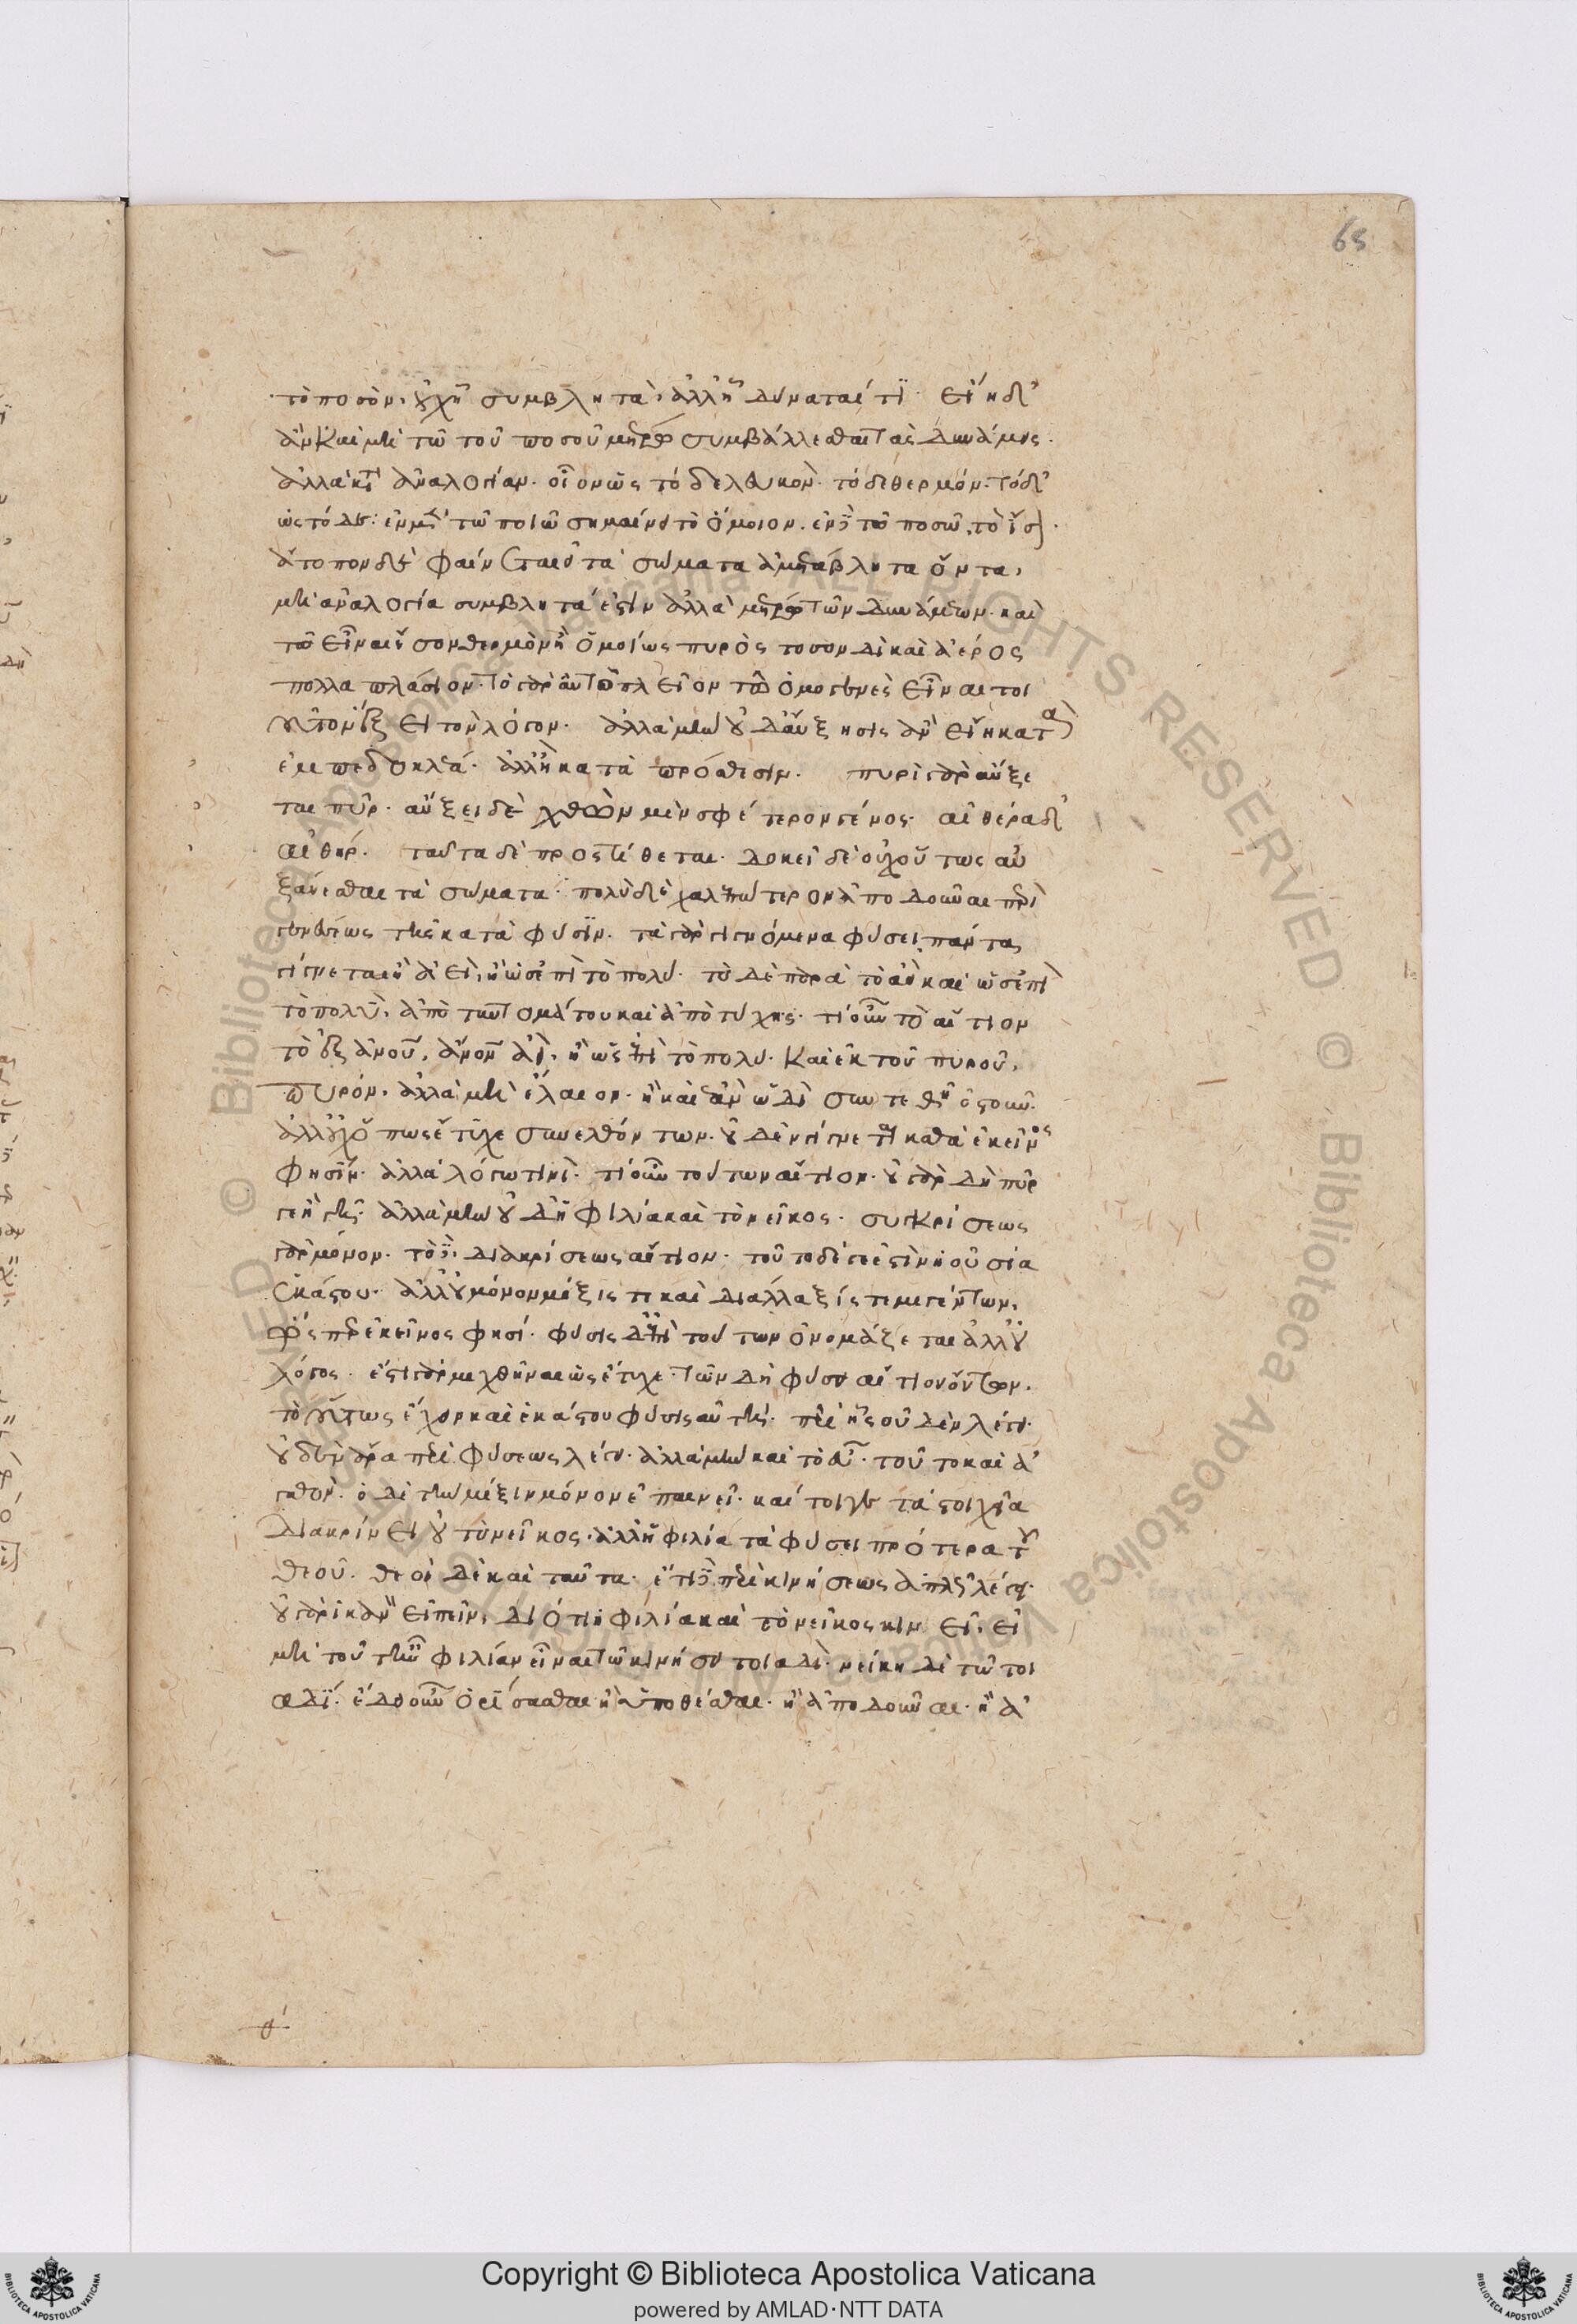 65
τὸ ποσὸν, οὐχ ᾗ συμβλητὰ, ἀλλ' ᾗ δύναταί τι. εἴη δ'
ἂν καὶ μὴ τῶ τοῦ ποσοῦ μέτρω συμβάλλεσθαι τὰς δυνάμεις.
ἀλλὰ κατ' ἀναλογίαν. οἷον ὡς τόδε λευκὸν. τόδε θερμόν. τόδ'
ὡς τόδε· ἐν μὲν τῶ ποιῶ σημαίνει τὸ ὅμοιον. ἐν δὲ τῶ ποσῶ, τὸ ἴσον.
ἄτοπον δὲ φαίνεται εἰ τὰ σώματα ἀμετάβλητα ὄντα,
μὴ ἀναλογία συμβλητά ἐστιν ἀλλὰ μέτρω τῶν δυνάμεων. καὶ
τῶ εἶναι ἴσον θερμὸν ἢ ὁμοίως πυρὸς τοσονδὶ καὶ ἀέρος
πολλαπλάσιον. τὸ γὰρ αὐτὸ πλεῖον τῶ ὁμογενὲς εἶναι τοι
οῦτον ἕξει τὸν λόγον. ἀλλὰ μὴν οὐδ' αὔξησις ἂν εἴη κατὰ
ἐμπεδοκλέα. ἀλλ' ἢ κατὰ πρόσθεσιν. πυρὶ γὰρ αὔξε
ται πῦρ. αὔξει δὲ χθὼν μὲν σφέτερον γένος. αἰθέρα δ'
αἰθήρ. ταῦτα δὲ προστίθεται. δοκεῖ δὲ οὐχ οὕτως αὐ
ξάνεσθαι τὰ σώματα. πολὺ δὲ χαλεπώτερον ἀποδοῦναι περὶ
γενέσεως τῆς κατὰ φύσιν. τὰ γὰρ γιγνόμενα φύσει, πάντα
γίγνεται ἢ ἀεὶ, ἢ ὡς ἐπὶ τὸ πολύ. τὰ δὲ παρὰ τὸ ἀεὶ καὶ ὡς ἐπὶ
τὸ πολὺ, ἀπὸ ταυτομάτου καὶ ἀπὸ τύχης. τί οὖν τὸ αἴτιον
τὸ ἐξ ἀνοῦ, ἄνον ἀεὶ, ἢ ὡς ἐπὶ τὸ πολύ. καὶ ἐκ τοῦ πυροῦ,
πυρόν. ἀλλὰ μὴ ἔλαιον. ἢ καὶ ἐὰν ὡδὶ συντεθῆ ὀστοῦν.
ἀλλ' οὐχ ὅπως ἔτυχε συνελθόντων. οὐδὲν γίγνεται καθὰ ἐκεῖνος
φησὶν. ἀλλὰ λόγω τινὶ. τί οὖν τούτων αἴτιον. οὐ γὰρ δὴ πῦρ
γε ἢ γῆ. ἀλλὰ μὴν οὐδ' ἡ φιλία καὶ τὸ νεῖκος. συγκρίσεως
γὰρ μόνον. τὸ δὲ, διακρίσεως αἴτιον. τοῦτο δέ γε ἐστὶν ἡ οὐσία
ἑκάστου. ἀλλ' οὐ μόνον μίξις τε καὶ διάλλαξίς τε μιγέντων,
ὥς περ ἐκεῖνος φησί. φύσις δ' ἐπὶ τούτων ὀνομάζεται ἀλλ' οὐ
λόγος. ἔστι γὰρ μιχθῆναι ὡς ἔτυχε. τῶν δὴ φύσει αἴτιον ὄντων,
τὸ οὕτως ἔχον καὶ ἑκάστου φύσις αὐτὴ. περὶ ἧς οὐδὲν λέγει.
οὐδὲν ἄρα περὶ φύσεως λέγει. ἀλλὰ μὴν καὶ τὸ εὖ. τοῦτο καὶ ἀ
γαθὸν. ὁ δὲ τὴν μίξιν μόνον ἐπαινεῖ. καί τοι γε τὰ στοιχεῖα
διακρίνει οὐ τὸ νεῖκος. ἀλλ' ἡ φιλία τὰ φύσει πρότερα τοῦ
θεοῦ. θεοὶ δὲ καὶ ταῦτα. ἔτι δὲ περὶ κινήσεως ἁπλῶς λέγει.
οὐ γὰρ ἱκανὸν εἰπεῖν, διότι ἡ φιλία καὶ τὸ νεῖκος κινεῖ, εἰ
μὴ τοῦτ' ἦν φιλίαν εἶναι τῶ κινήσει τοιαδὶ. νείκη δὲ τῶ τοι
αδί. ἔδει οὖν ὁρίσασθαι ἢ ὑποθέσθαι. ἢ ἀποδοῦναι. ἢ ἀ